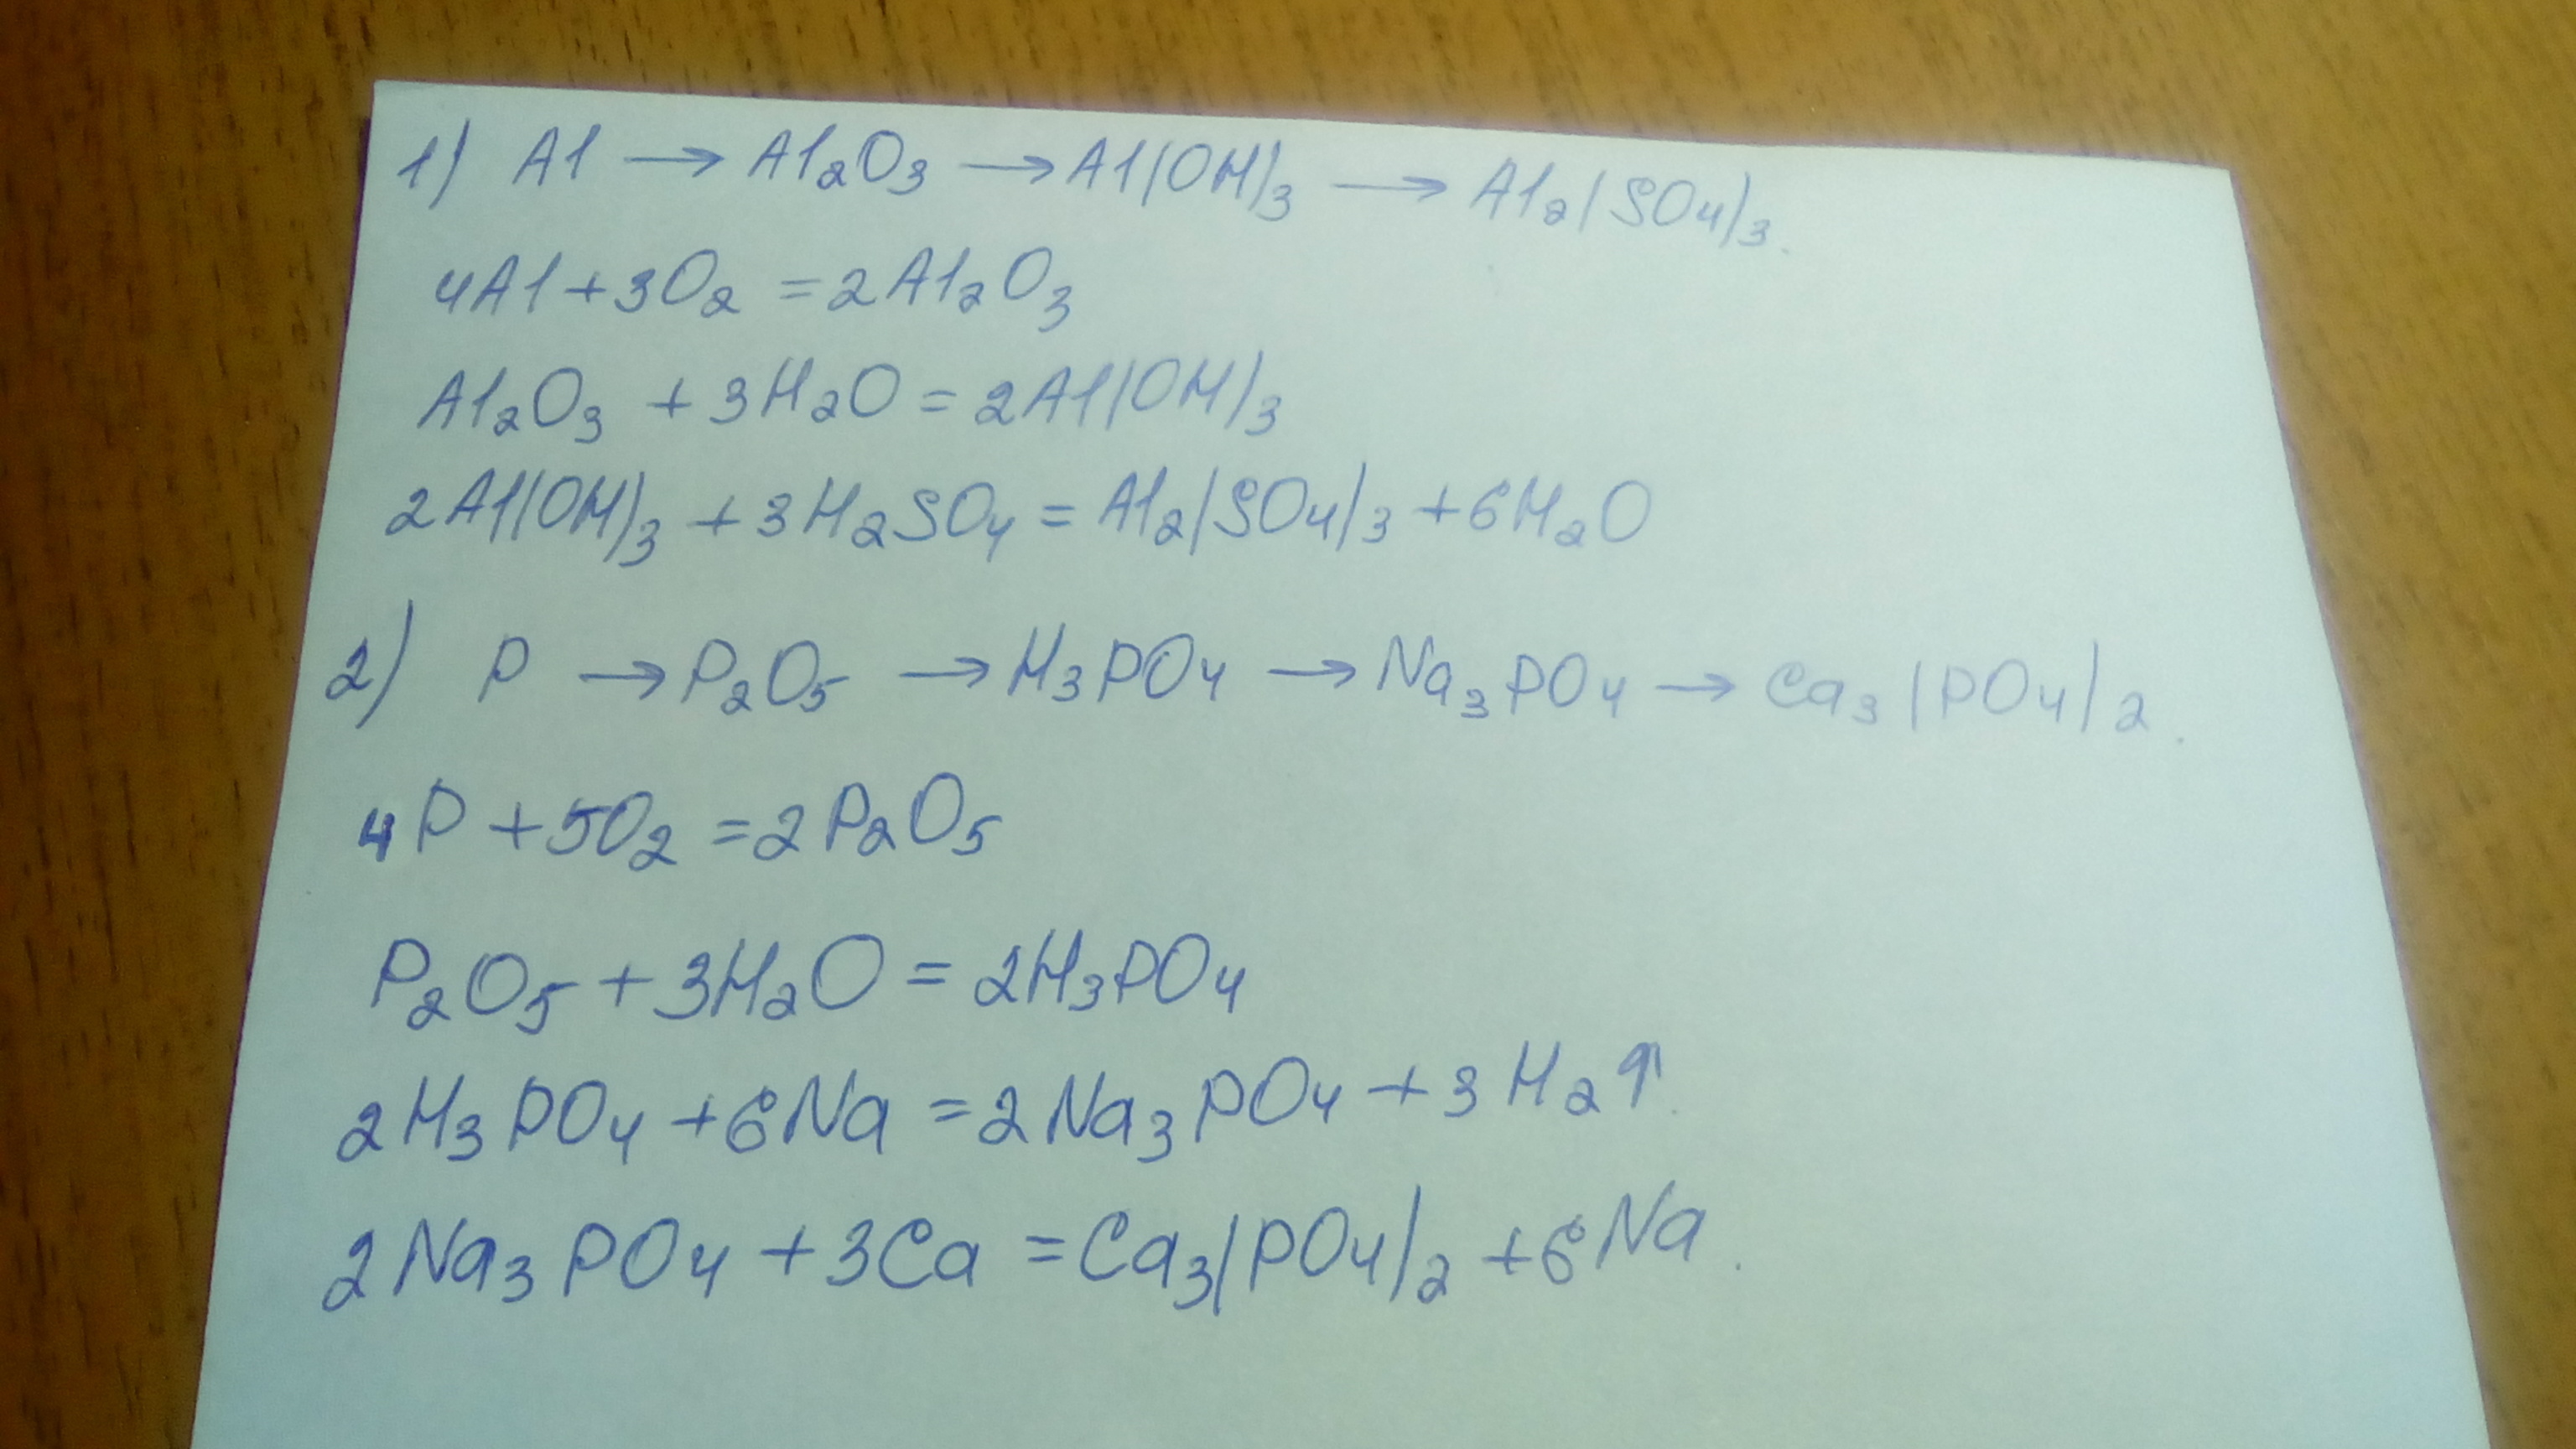 1) Al → Al₂O₃ → Al(OH)₃ → Al₂(SO₄)₃.
4Al + 3O₂ = 2Al₂O₃
Al₂O₃ + 3H₂O = 2Al(OH)₃
2Al(OH)₃ + 3H₂SO₄ = Al₂(SO₄)₃ + 6H₂O
2) P → P₂O₅ → H₃PO₄ → Na₃PO₄ → Ca₃(PO₄)₂.
4P + 5O₂ = 2P₂O₅
P₂O₅ + 3H₂O = 2H₃PO₄
2H₃PO₄ + 6Na = 2Na₃PO₄ + 3H₂↑.
2Na₃PO₄ + 3Ca = Ca₃(PO₄)₂ + 6Na.